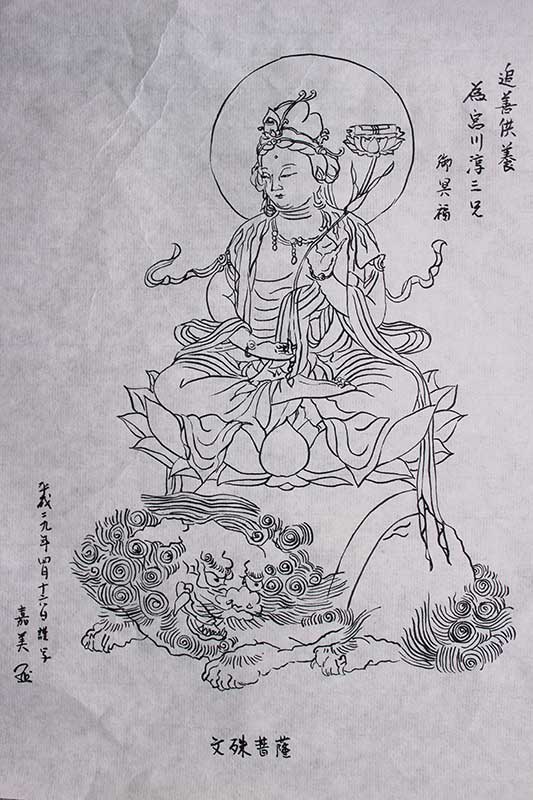 追善供養
為宮川淳三兄
御冥福
平成二九年四月十六日 謹写
嘉美
文殊菩薩